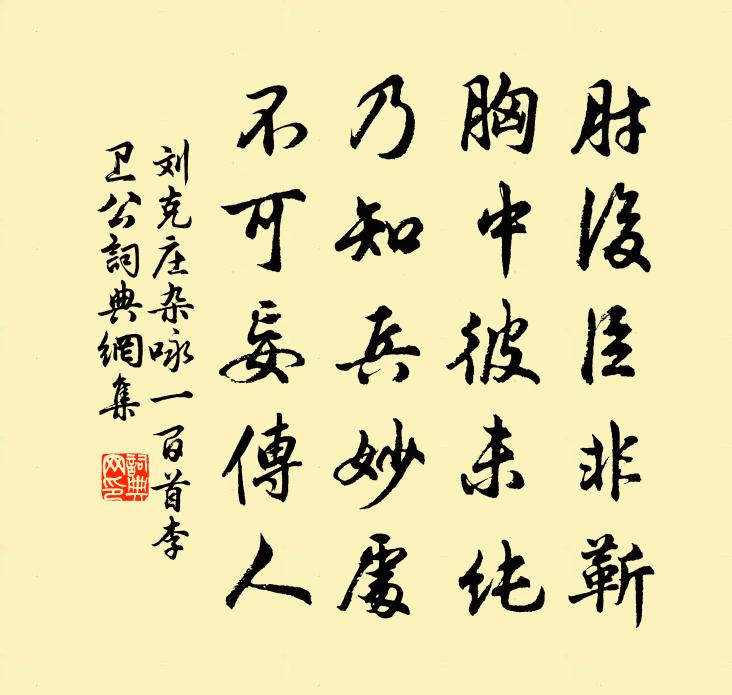 肘後臣非靳
胸中彼未纯
乃知兵妙處
不可妄傳人
刘克庄杂咏一百首李
卫公詞典網集
詞典
网印